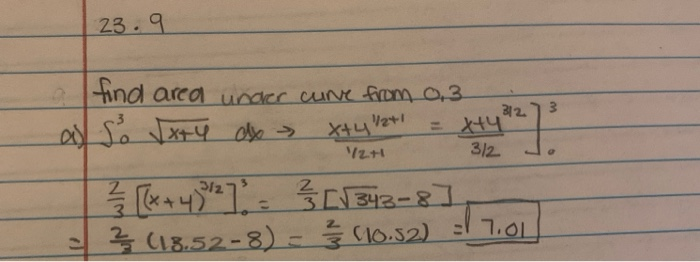 23.9
find area under curve from 0,3
a) ∫₀³ √(x+4) dx → x+4^(1/2+1) / (1/2+1) = x+4^(3/2) / (3/2) ]₀³
2/3 [(x+4)^(3/2)]₀³ = 2/3 [√343-8]
= 2/3 (18.52-8) = 2/3 (10.52) = 7.01